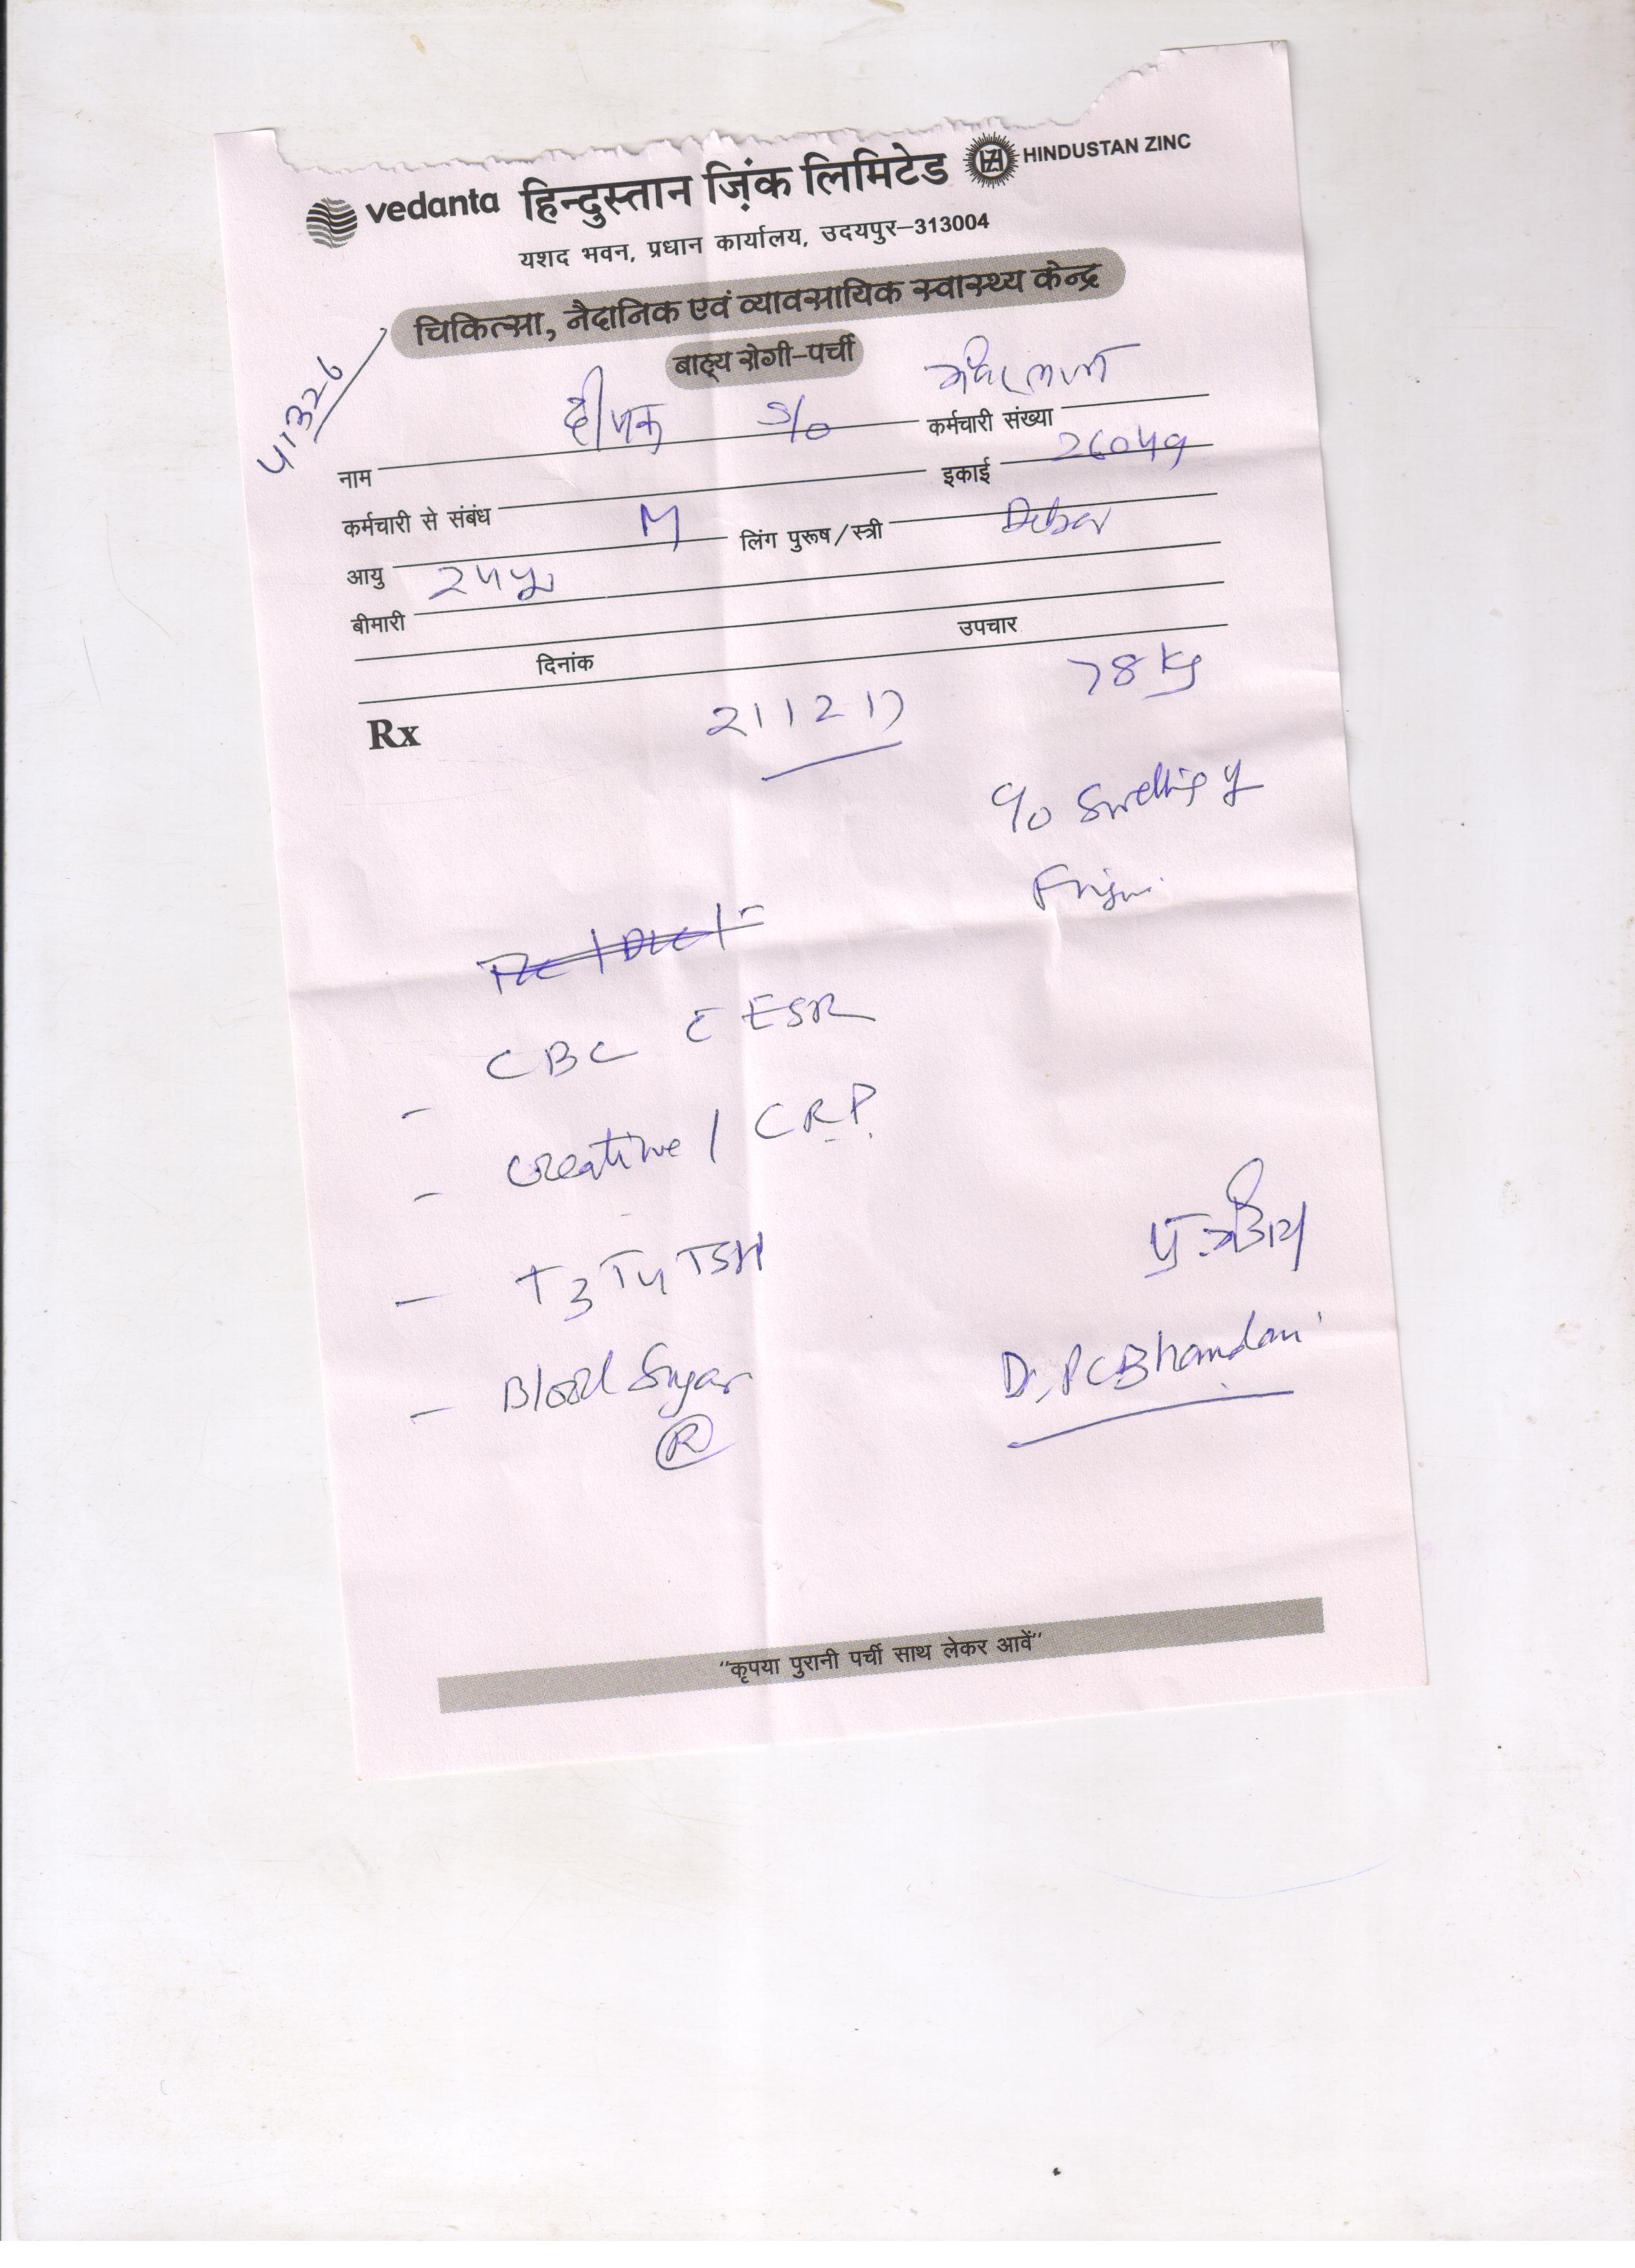 vedanta हिन्दुस्तान ज़िंक लिमिटेड HINDUSTAN ZINC
यशद भवन, प्रधान कार्यालय, उदयपुर–313004
चिकित्सा, नैदानिक एवं व्यावसायिक स्वास्थ्य केन्द्र
बाह्य रोगी–पर्ची
41326
नाम दीपक S/o कर्मचारी संख्या
कर्मचारी से संबंध इकाई 26049
आयु M लिंग पुरूष/स्त्री
बीमारी 24 yr
दिनांक उपचार
Rx 211217 78 kg
C/o Swelling of
CBC c ESR
- Creatine / CRP
- T3 T4 TSH
- Blood Sugar
(R)
Dr. P C Bhandari
"कृपया पुरानी पर्ची साथ लेकर आवें"